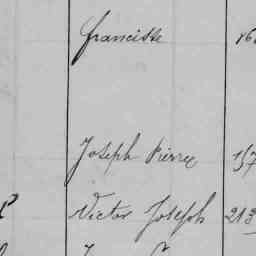 francisk
Joseph Pierre 157
Victor Joseph 213